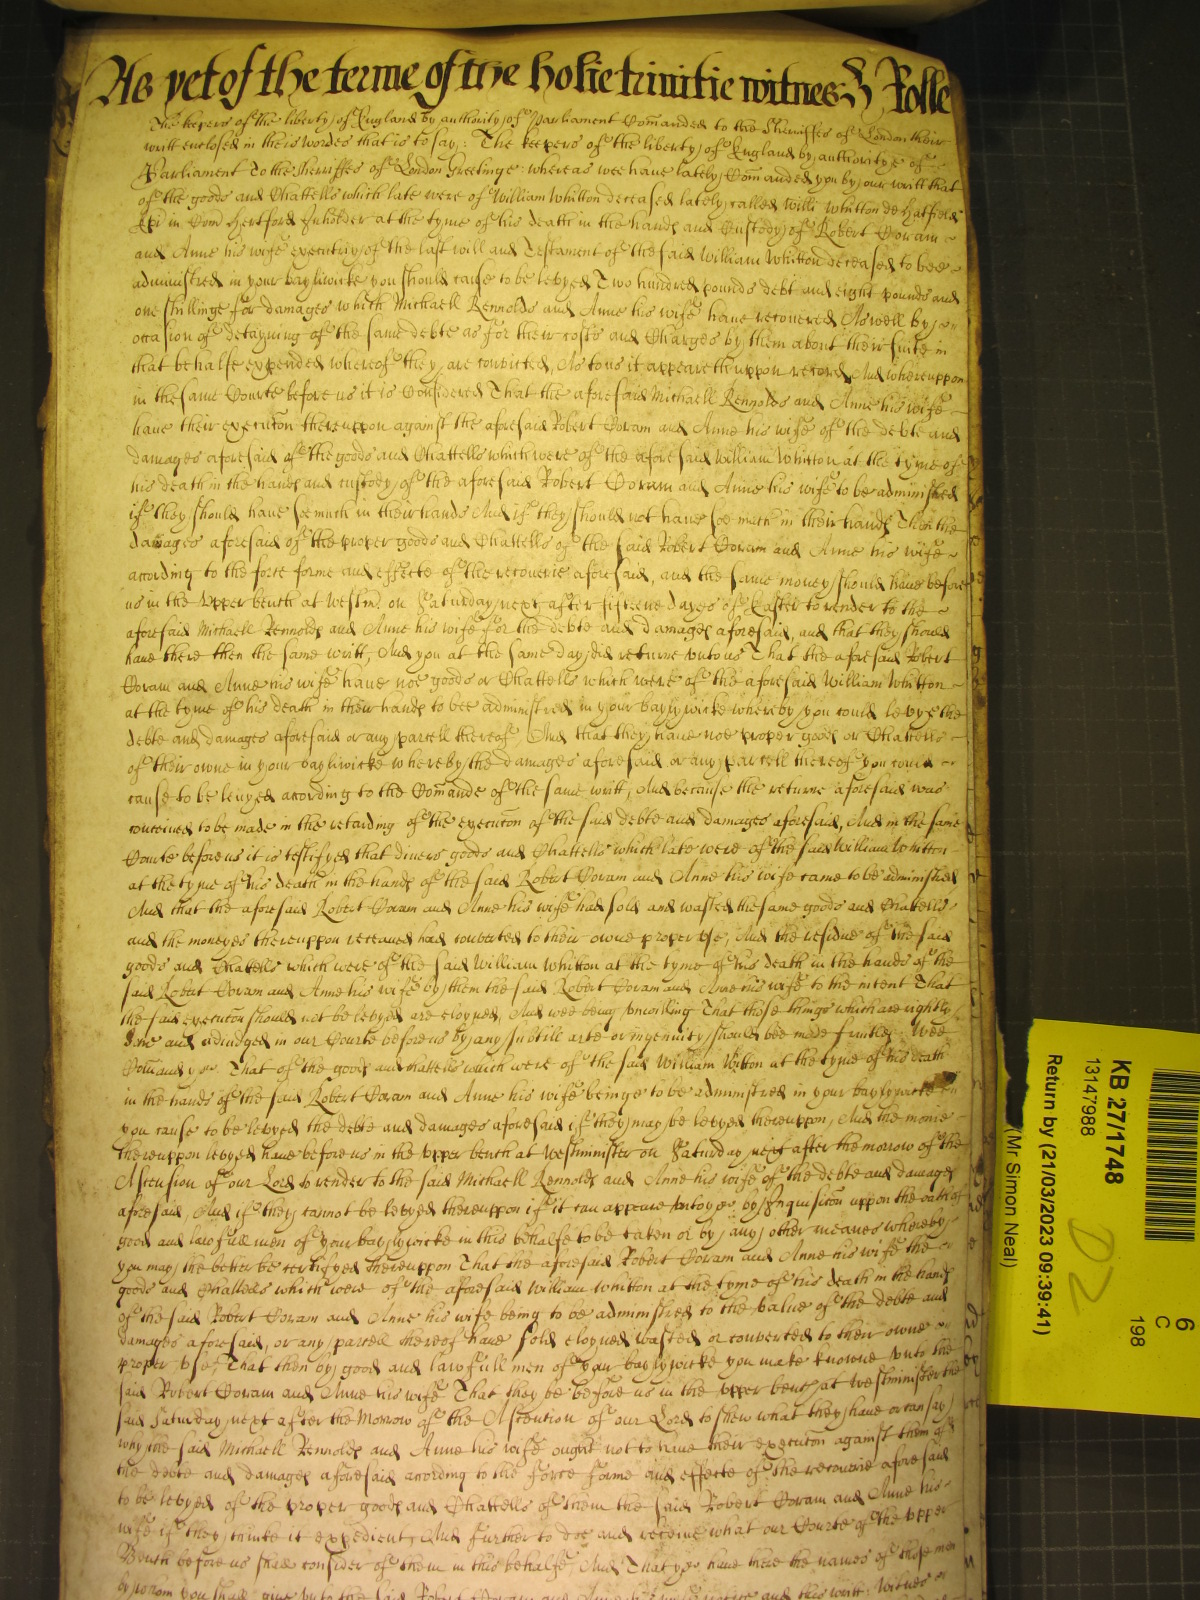 As yet of the terme of the holie trinitie witnes H Rolle
The keepers of the liberty of England by authority of Parliament Comanded to the Sherriffes of London their
writt enclosed in theis wordes that is to say: The keepers of the liberty of England by authoritye of
Parliament To the Sherriffes of London Greetinge: whereas wee have lately Comanded you by our writt that
of the goods and Chattells which late were of William Whitton deceased lately called Willi Whitton de Hatfield
in Com Hertford Inholder at the tyme of his death in the hands and Custody of Robert Coram
and Anne his wife executrix of the last will and Testament of the said William Whitton deceased to bee
administred in your bayliwicke you should cause to be levyed Two hundred pounds debt and eight pounds and
one shillinge for damages which Michaell Rennolds and Anne his wife have recovered Aswell by
occasion of detayning of the same debte as for their costs and Charges by them about their suite in
that behalfe expended whereof they are convicted, As to us it appeareth uppon record, And whereuppon
in the same Courte before us it is Considered That the aforesaid Michaell Rennolds and Anne his wife
have their execucon thereuppon against the aforesaid Robert Coram and Anne his wife of the debte and
damages aforesaid of the goods and Chattells which were of the aforesaid William Whitton at the tyme of
his death in the hands and custody of the aforesaid Robert Coram and Anne his wife to be administred
if they should have soe much in their hands And if they should not have soe much in their hands Then the
damages aforesaid of the proper goods and Chattells of the said Robert Coram and Anne his wife
according to the force forme and effecte of the recoverie aforesaid, and the same money should have before
us in the Upper bench at Westmr on Saturday next after fifteene dayes of Easter to render to the
aforesaid Michaell Rennolds and Anne his wife for the debte and damages aforesaid, and that they should
have there then the same writt, And you at the same day did returne unto us That the aforesaid Robert
Coram and Anne his wife have noe goods or Chattells which were of the aforesaid William Whitton
at the tyme of his death in their hands to bee administred in your baylywicke whereby you could levye the
debte and damages aforesaid or any parcell thereof, And that they have noe proper goods or Chattells
of their owne in your bayliwicke whereby the damages aforesaid or any parcell thereof you could
cause to be levyed according to the Comande of the same writt, And because the returne aforesaid was
conceived to be made in the retarding of the execucon of the said debte and damages aforesaid, And in the same
Courte before us it is testifyed that divers goods and Chattells which late were of the said William Whitton
at the tyme of his death in the hands of the said Robert Coram and Anne his wife came to be administred
And that the aforesaid Robert Coram and Anne his wife had sold and wasted the same goods and Chattells
and the moneyes thereuppon received had converted to their owne proper use, And the residue of the said
goods and Chattells which were of the said William Whitton at the tyme of his death in the hands of the
said Robert Coram and Anne his wife by them the said Robert Coram and Anne his wife to the intent That
the said execucon should not be levyed are eloyned, And wee being unwilling That those things which are rightly
done and adiudged in our Courte before us by any subtill arte or ingenuity should bee made fruitles: Wee
Comand you That of the goods and Chattells which were of the said William Witton at the tyme of his death
in the hands of the said Robert Coram and Anne his wife beinge to be administred in your baylywicke
you cause to be levyed the debte and damages aforesaid if they may be levyed thereuppon, And the monie
thereuppon levyed have before us in the upper bench at Westminister on Saturday next after the morrow of the
Ascension of our Lord to render to the said Michaell Rennolds and Anne his wife of the debte and damages
aforesaid, And if they cannot be levyed thereuppon if it can appeare unto you by Inquisicon uppon the oath of
good and lawfull men of your baylywicke in this behalfe to be taken or by any other meanes whereby
you may the better be certifyed thereuppon That the aforesaid Robert Coram and Anne his wife the
goods and Chattells which were of the aforesaid William Whitton at the tyme of his death in the hands
of the said Robert Coram and Anne his wife being to be administred to the value of the debte and
damages aforesaid, or any parcell thereof have sold eloyned wasted or converted to their owne
proper use, That then by good and lawfull men of your baylywicke you make knowne unto the
said Robert Coram and Anne his wife That they be before us in the upper bench at Westminister the
said Saturday next after the Morrow of the Ascention of our Lord to shew what they have or can say
why the said Michaell Rennolds and Anne his wife ought not to have their execucon against them of
the debte and damages aforesaid according to the force forme and effecte of the recoverie aforesaid
to be levyed of the proper goods and Chattells of them the said Robert Coram and Anne his
wife if they thinke it expedient, And further to doe and receive what our Courte of the upper
Bench before us shall consider of them in this behalfe, And That you have there the names of those men
by whom you shall give unto the said Robert Coram and Anne his wife notice and this writt: Witnes
KB 27/1748
13147988
Return by (21/03/2023 09:39:41)
(Mr Simon Neal)
6
C
198
D2